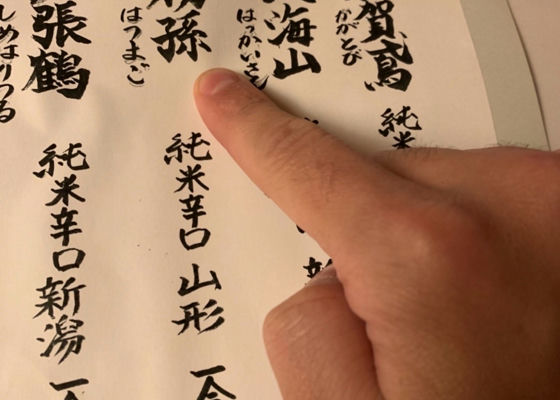 賀鳶
かがとび
純米
海山
はっかいさん
孫
はつまご
純米辛口 山形 一合
張鶴
しめはりつる
純米辛口 新潟 一